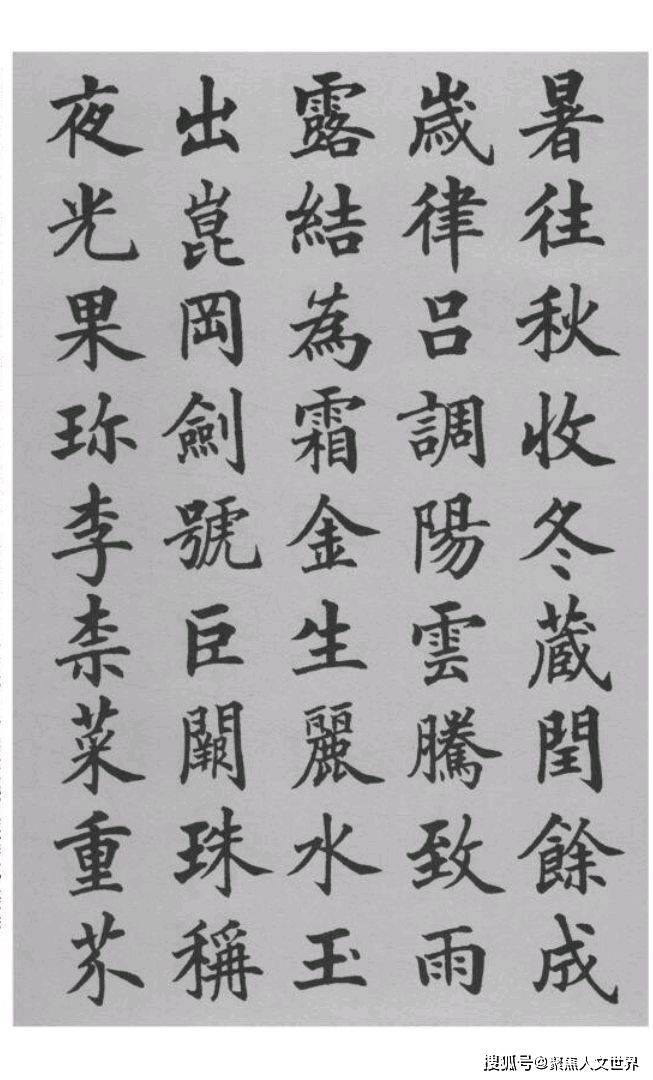 暑往秋收冬蔵閏餘成
歲律呂調陽雲騰致雨
露結為霜金生麗水玉
出崑岡劍號巨闕珠稱
夜光果珎李柰菜重芥
搜狐号@聚焦人文世界